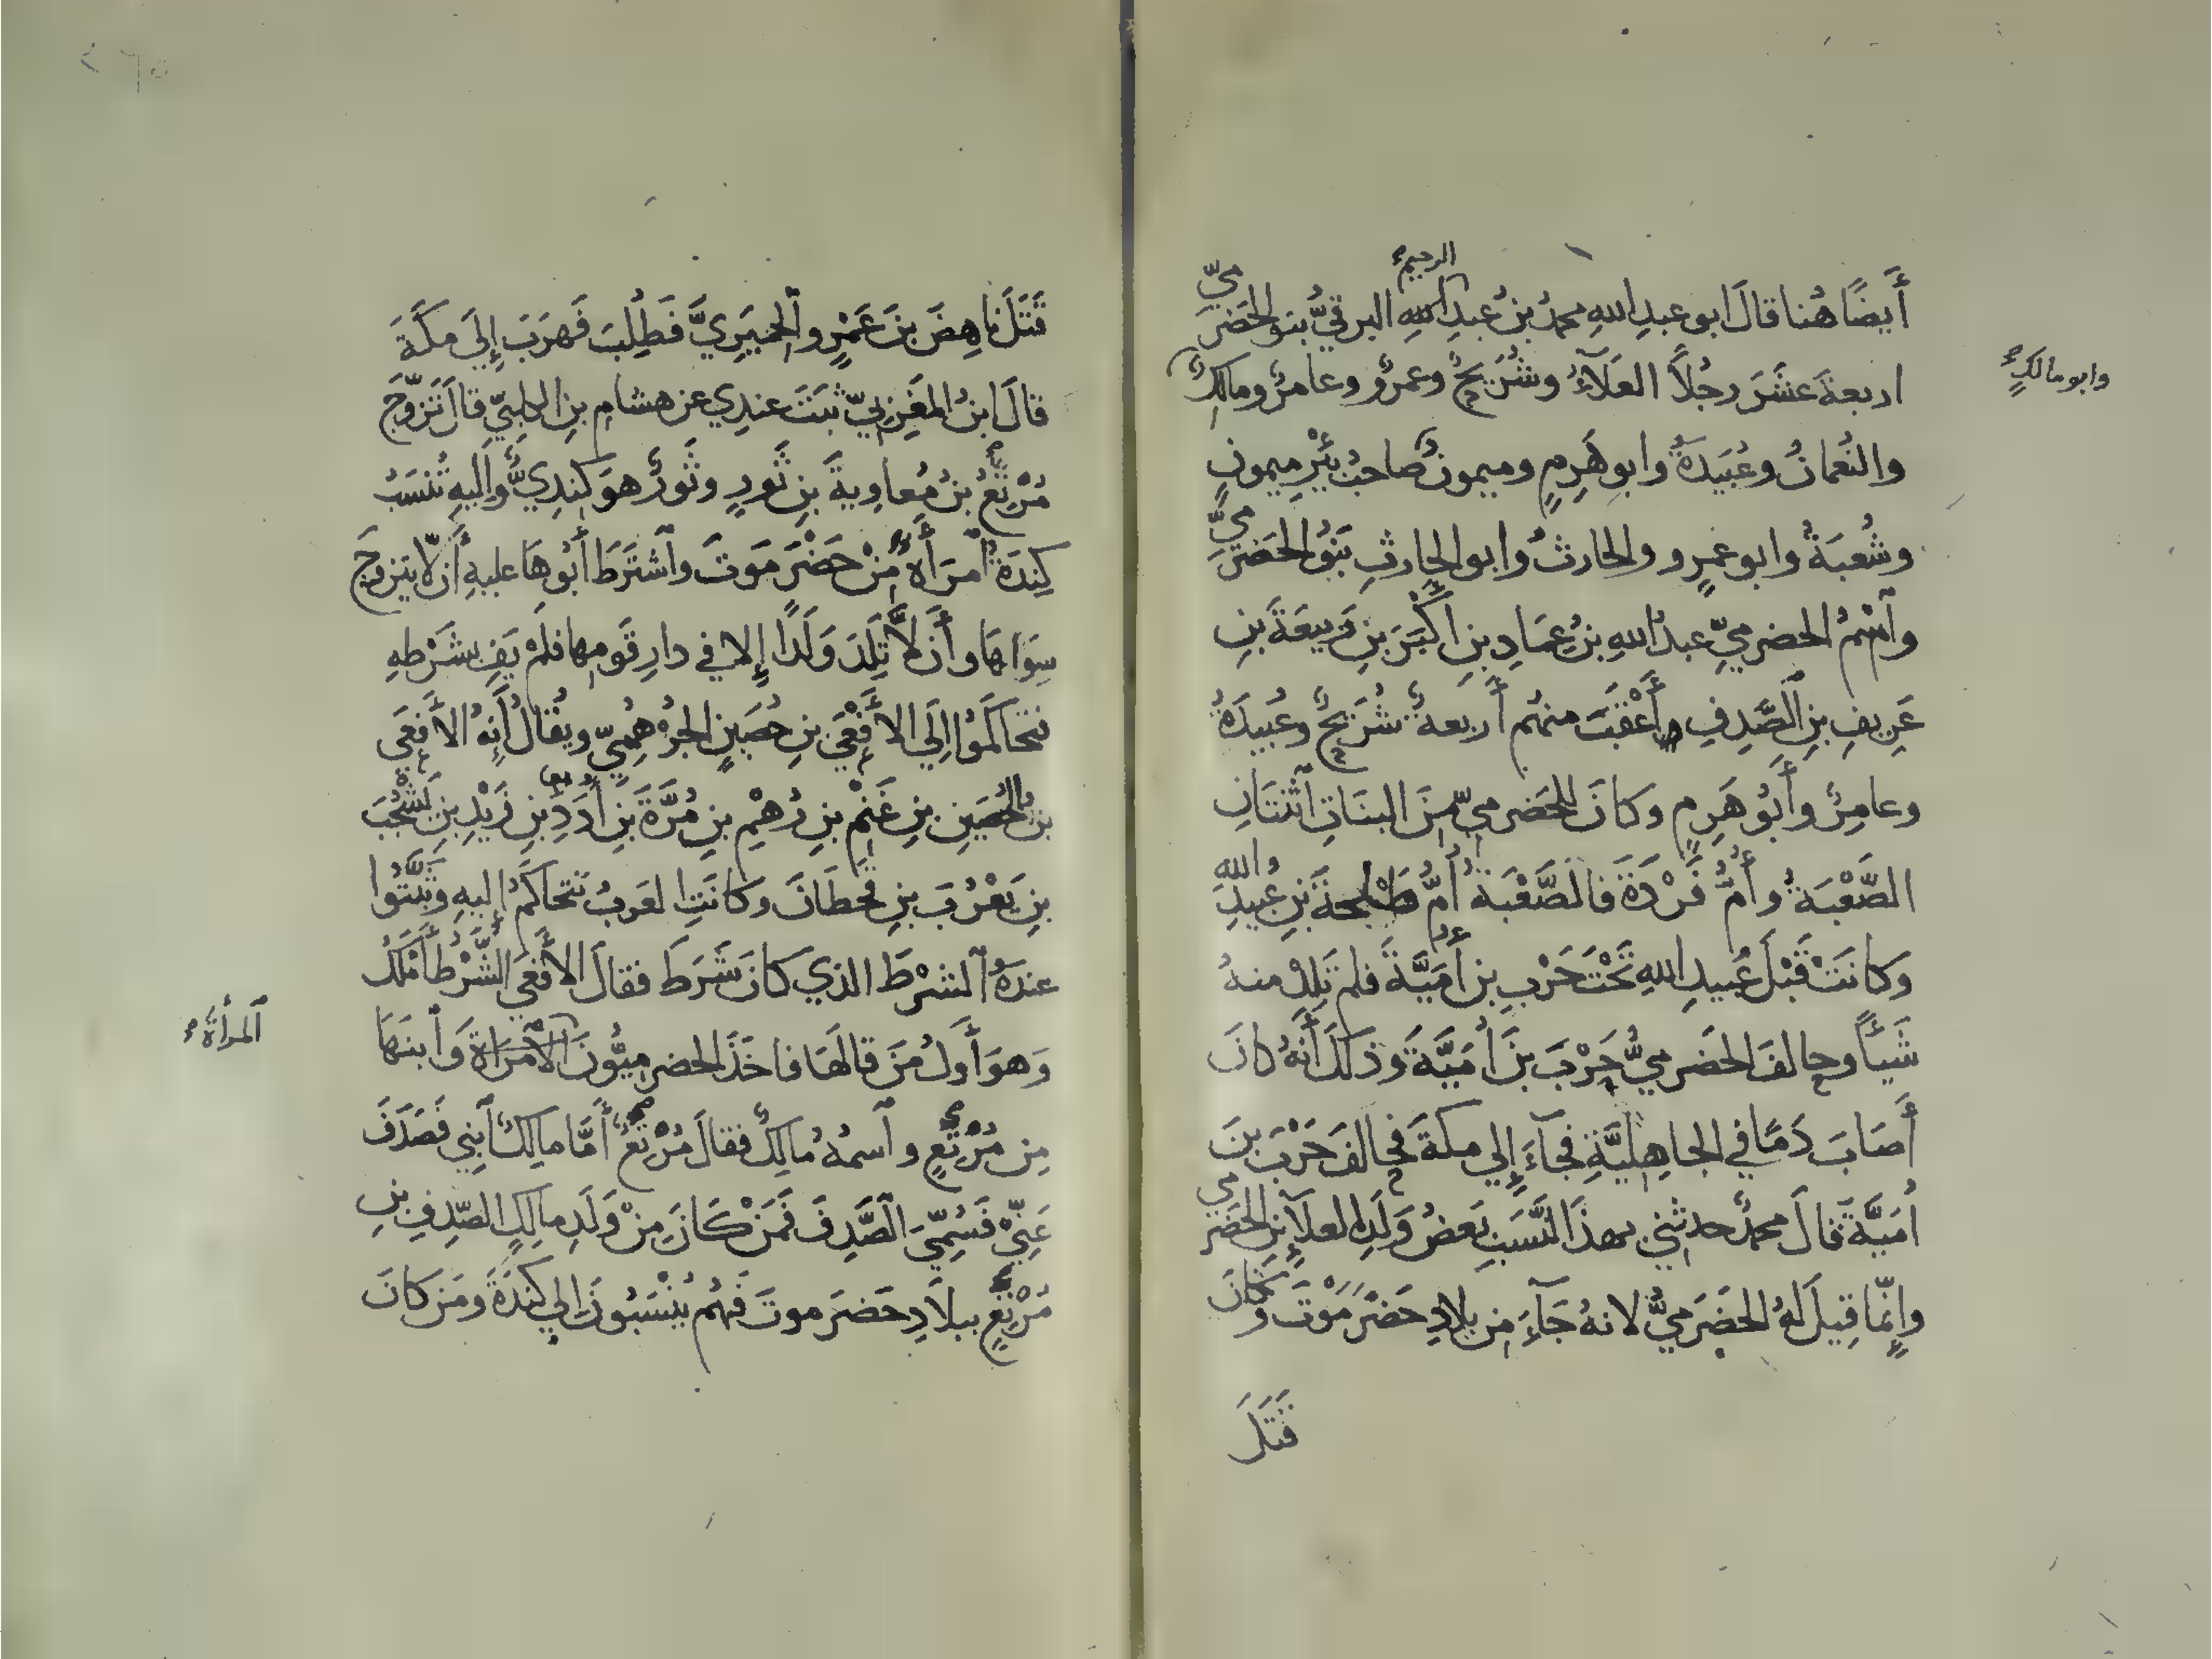 أَيضًا هُنا قالَ ابو عبدِ اللهِ محمدُ بنُ عبدِ اللهِ البرقيُّ بنو الحَضرَميّ
الرحيم
اربعةَ عشَرَ رجُلاً العَلَآءُ وشُرَيحٌ وعمرٌو وعامرٌ ومالكٌ
وابو مالكٍ
والنُعمانُ وعُبَيدَةُ وابو هَرِمٍ وميمونٌ صاحبُ بئْرِ ميمونٍ
وشُعبَةُ وابو عمرٍو والحارثُ وابو الحارثِ بَنُو الحَضرَميّ
وآسْمُ الحضرميّ عبدُ اللهِ بنُ عِمَادِ بنِ اكْبَرَ بنِ رَبيعَةَ بنِ
عَرِيفِ بنِ الصَّدِفِ وأَعْقَبَ منهُم أَربعةٌ شُرَيحٌ وعُبيدَةُ
وعامِرٌ وأَبُو هَرِمٍ وكانَ للحَضرميّ مِنَ البنَاتِ آثنتَانِ
الصَّعْبَةُ وأُمُّ فَرْدَةَ فالصَّعْبَةُ أُمُّ طَلحةَ بنِ عُبيدِ والله
وَكانَتْ قَبْلَ عُبيدِ اللهِ تَحْتَ حَرْبِ بنِ أُمَيَّةَ فلم تَلِدْ منهُ
شَيئاً وحالفَ الحَضرميُّ حَرْبَ بنَ أُمَيَّةَ وَذَلكَ أَنهُ كانَ
أَصَابَ دَمًا في الجاهِليَّةِ فَجآءَ إِلي مكةَ فحالفَ حَرْبَ بنَ
أُمَيَّةَ قالَ محمدٌ حدثني بهذَا النَّسَبِ بَعضُ وَلَدِ العلآءِ بنِ الحَضرَمي
وإِنّما قِيلَ لهُ الحَضَرميُّ لانهُ جَآءَ مِن بِلادِ حَضْرَمَوْتَ وكانَ
قَتَلَ
قَتَلَ ناهِضَ بنَ عَمْرٍو الحِميَرِيَّ فَطُلِبَ فَهرَبَ إِلَي مكَّةَ
قالَ ابنُ المغَرِبيّ ثبَتَ عندِي عن هشامِ بنِ الكلبيّ قالَ تَزوّجَ
مُرْتِعُ بنُ مُعاوِيةَ بنِ ثَورٍ وثَورٌ هوَ كِندِيٌّ وإليهِ تُنسَبُ
كِندَةُ آمرَأَةً مِنْ حَضْرَمَوتَ وآشتَرَطَ أَبُوهَا عليهِ أَن لّا يتزوجَ
سِوَاهَا وأَن لَّا تَلِدَ وَلَدًا إِلا في دارِ قَومِها فلَمْ يَفِ بشَرْطهِ
فتحاكَمُوا إِلَي الأَفْعَي بنِ حُصَينٍ الجُرْهُميّ ويُقالُ أَنهُ الافعَي
بنُ الحُصَينِ بنِ غَنْمِ بنِ رُهْمِ بنِ مُرَّةَ بنِ أُدَدِ بنِ زَيْدِ بنِ يَشْجُبَ
بنِ يَعْرُبَ بنِ قَحطَانَ وكانَتِ العَربُ تتحاكَمُ إِليهِ وثبَّتُوا
عندَهُ الشرْطَ الذي كانَ شَرَطَ فقالَ الأَفْعَي الشَّرْطُ أَمْلَكُ
وَهوَ أَولُ مَن قالهَا فاخَذَ الحضرميُّونَ الآمْرَاةَ وَآبنَهَا
آلمرأَة
مِن مُرْتِعٍ وآسمُهُ مالِكٌ فقالَ مُرْتِعٌ أَمَّا مالِكٌ آبنِي فَصَدَفَ
عَنِّيْ فَسُمِّيَ الصَّدِفَ فَمَنْ كَانَ مِنْ وَلَدِ مالِكٍ الصَّدِفِ بنِ
مُرْتِعٍ ببلَادِ حَضرَموتَ فَهُم يُنْسَبُونَ إِلي كِندَةَ ومَن كانَ